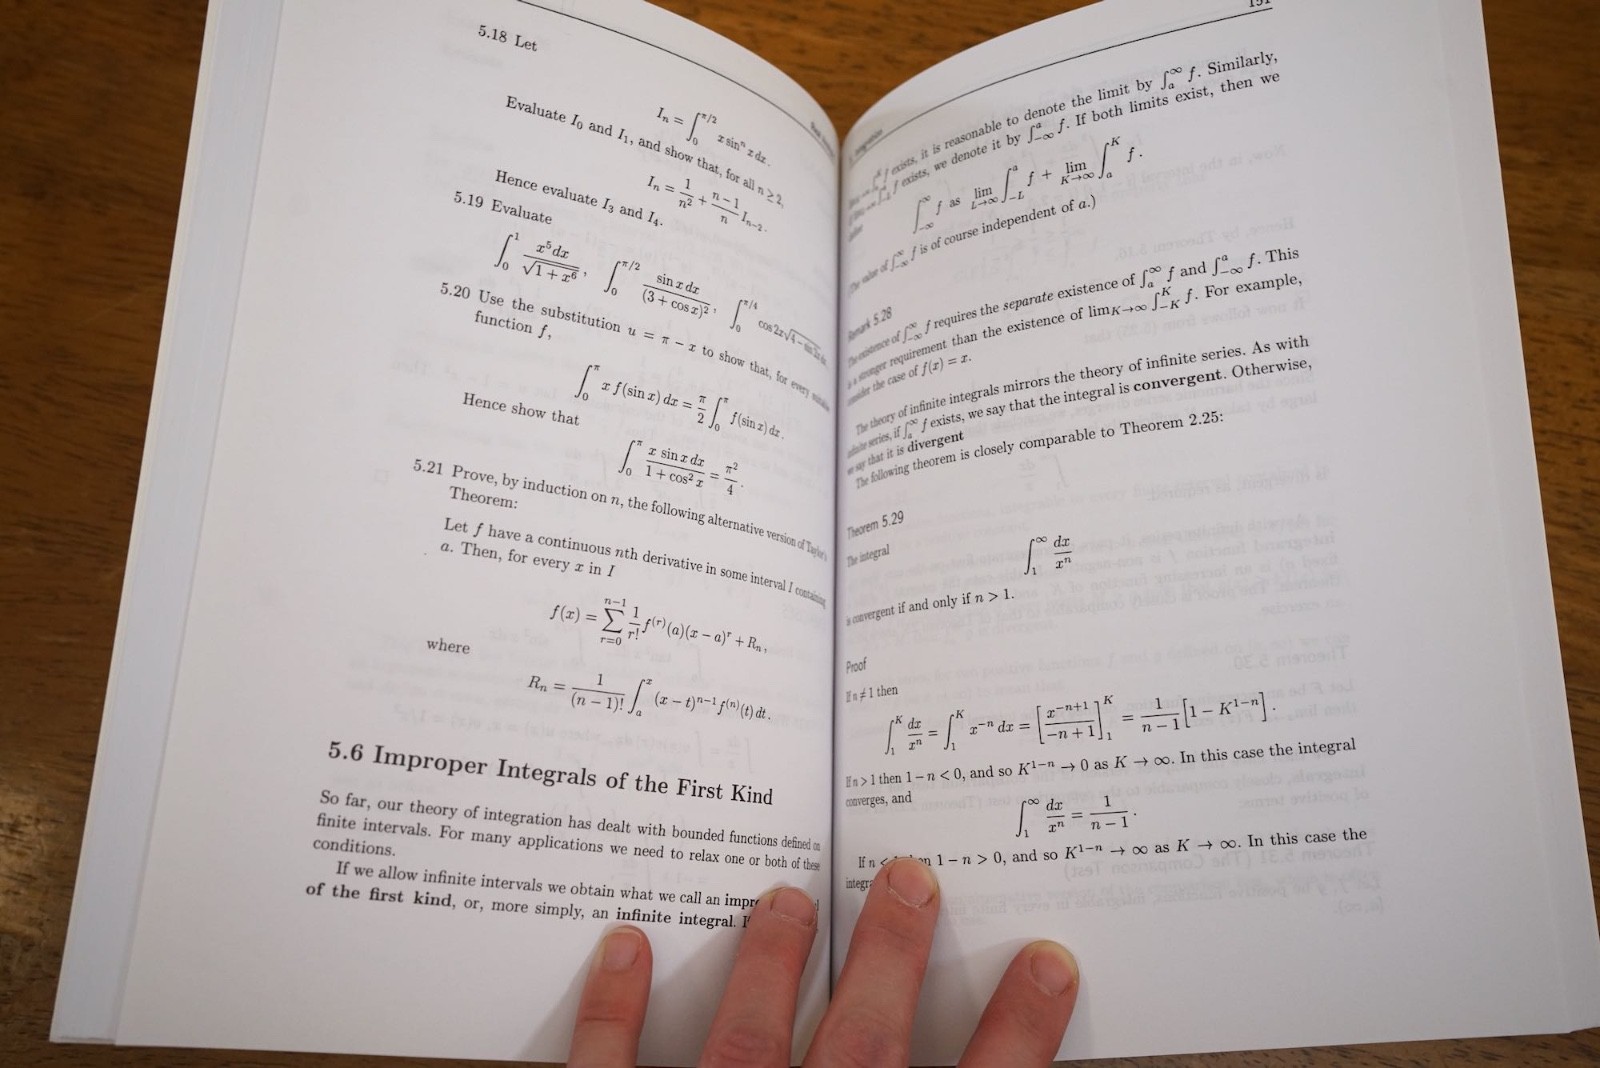 5.18 Let
I_n = ∫_0^{π/2} x sin^n x dx.
Evaluate I_0 and I_1, and show that, for all n ≥ 2,
I_n = 1/n² + (n − 1)/n I_{n−2}.
Hence evaluate I_3 and I_4.
5.19 Evaluate
∫_0^1 x⁵dx/√(1 + x⁶), ∫_0^{π/2} sin x dx/(3 + cos x)², ∫_0^{π/4} cos 2x√(4 −
5.20 Use the substitution u = π − x to show that, for every
function f,
∫_0^π x f(sin x) dx = π/2 ∫_0^π f(sin x) dx.
Hence show that
∫_0^π x sin x dx/(1 + cos² x) = π²/4.
5.21 Prove, by induction on n, the following alternative version of Taylor's
Theorem:
Let f have a continuous nth derivative in some interval I containing
a. Then, for every x in I
f(x) = ∑_{r=0}^{n−1} 1/r! f^{(r)}(a)(x − a)^r + R_n,
where
R_n = 1/(n − 1)! ∫_a^x (x − t)^{n−1} f^{(n)}(t) dt.
5.6 Improper Integrals of the First Kind
So far, our theory of integration has dealt with bounded functions defined on
finite intervals. For many applications we need to relax one or both of these
conditions.
If we allow infinite intervals we obtain what we call an
of the first kind, or, more simply, an infinite integral.
151
f exists, it is reasonable to denote the limit by ∫_a^∞ f. Similarly,
f exists, we denote it by ∫_{−∞}^a f. If both limits exist, then we
∫_{−∞}^∞ f as lim_{L→∞} ∫_{−L}^a f + lim_{K→∞} ∫_a^K f.
(The value of ∫_{−∞}^∞ f is of course independent of a.)
Remark 5.28
The existence of ∫_{−∞}^∞ f requires the separate existence of ∫_a^∞ f and ∫_{−∞}^a f. This
is a stronger requirement than the existence of lim_{K→∞} ∫_{−K}^K f. For example,
consider the case of f(x) = x.
The theory of infinite integrals mirrors the theory of infinite series. As with
infinite series, if ∫_a^∞ f exists, we say that the integral is convergent. Otherwise,
we say that it is divergent
The following theorem is closely comparable to Theorem 2.25:
Theorem 5.29
The integral
∫_1^∞ dx/x^n
is convergent if and only if n > 1.
Proof
If n ≠ 1 then
∫_1^K dx/x^n = ∫_1^K x^{−n} dx = [x^{−n+1}/(−n + 1)]_1^K = 1/(n − 1) [1 − K^{1−n}].
If n > 1 then 1 − n < 0, and so K^{1−n} → 0 as K → ∞. In this case the integral
converges, and
∫_1^∞ dx/x^n = 1/(n − 1).
If n < 1 − n > 0, and so K^{1−n} → ∞ as K → ∞. In this case the